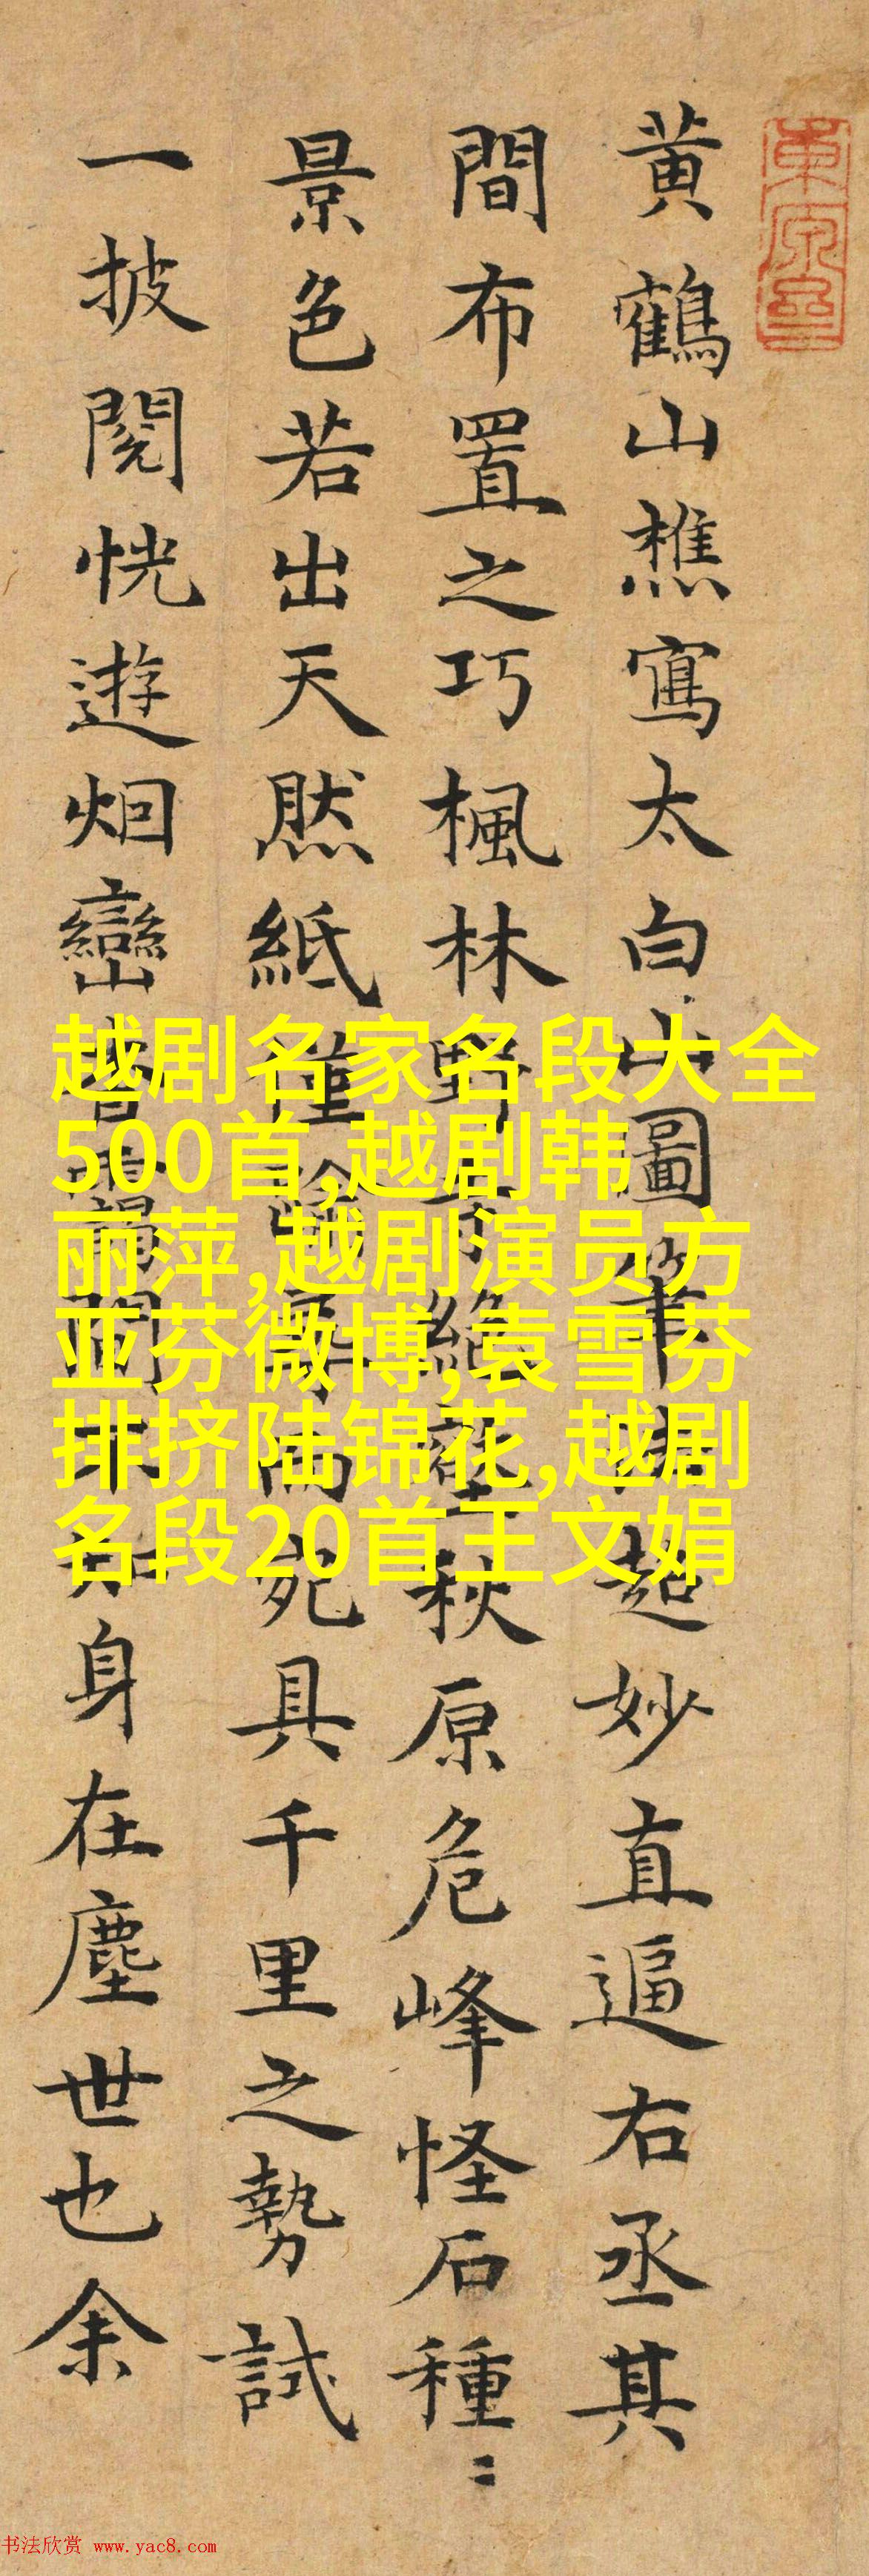 黄鶴山樵寫太白山圖筆超妙直逼右丞其
間布置之巧楓林野寺絶壑秋原危峰怪石種〻
景色若出天然紙僅尋而宛具千里之勢試
一披閱恍遊烟巒靄間不知身在塵世也余
越剧名家名段大全
500首,越剧韩
丽萍,越剧演员方
亚芬微博,袁雪芬
排挤陆锦花,越剧
名段20首王文娟
书法欣赏 www.yac8.com